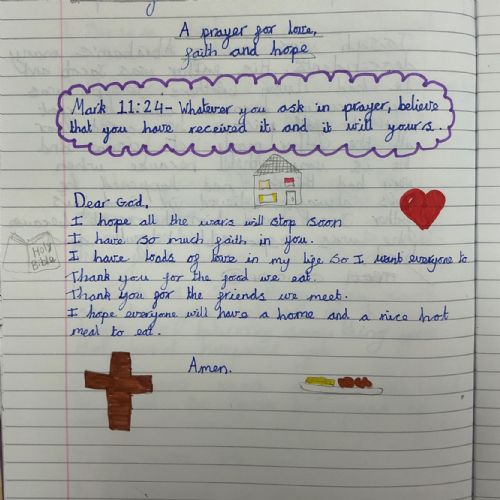 A prayer for love,
faith and hope
Mark 11:24- Whatever you ask in prayer, believe
that you have received it and it will yours.
Dear God,
I hope all the wars will stop soon
I have so much faith in you.
I have loads of love in my life so I want everyone to
Thank you for the food we eat.
Thank you for the friends we meet.
I hope everyone will have a home and a nice hot
meal to eat.
Amen.
Holy
Bible